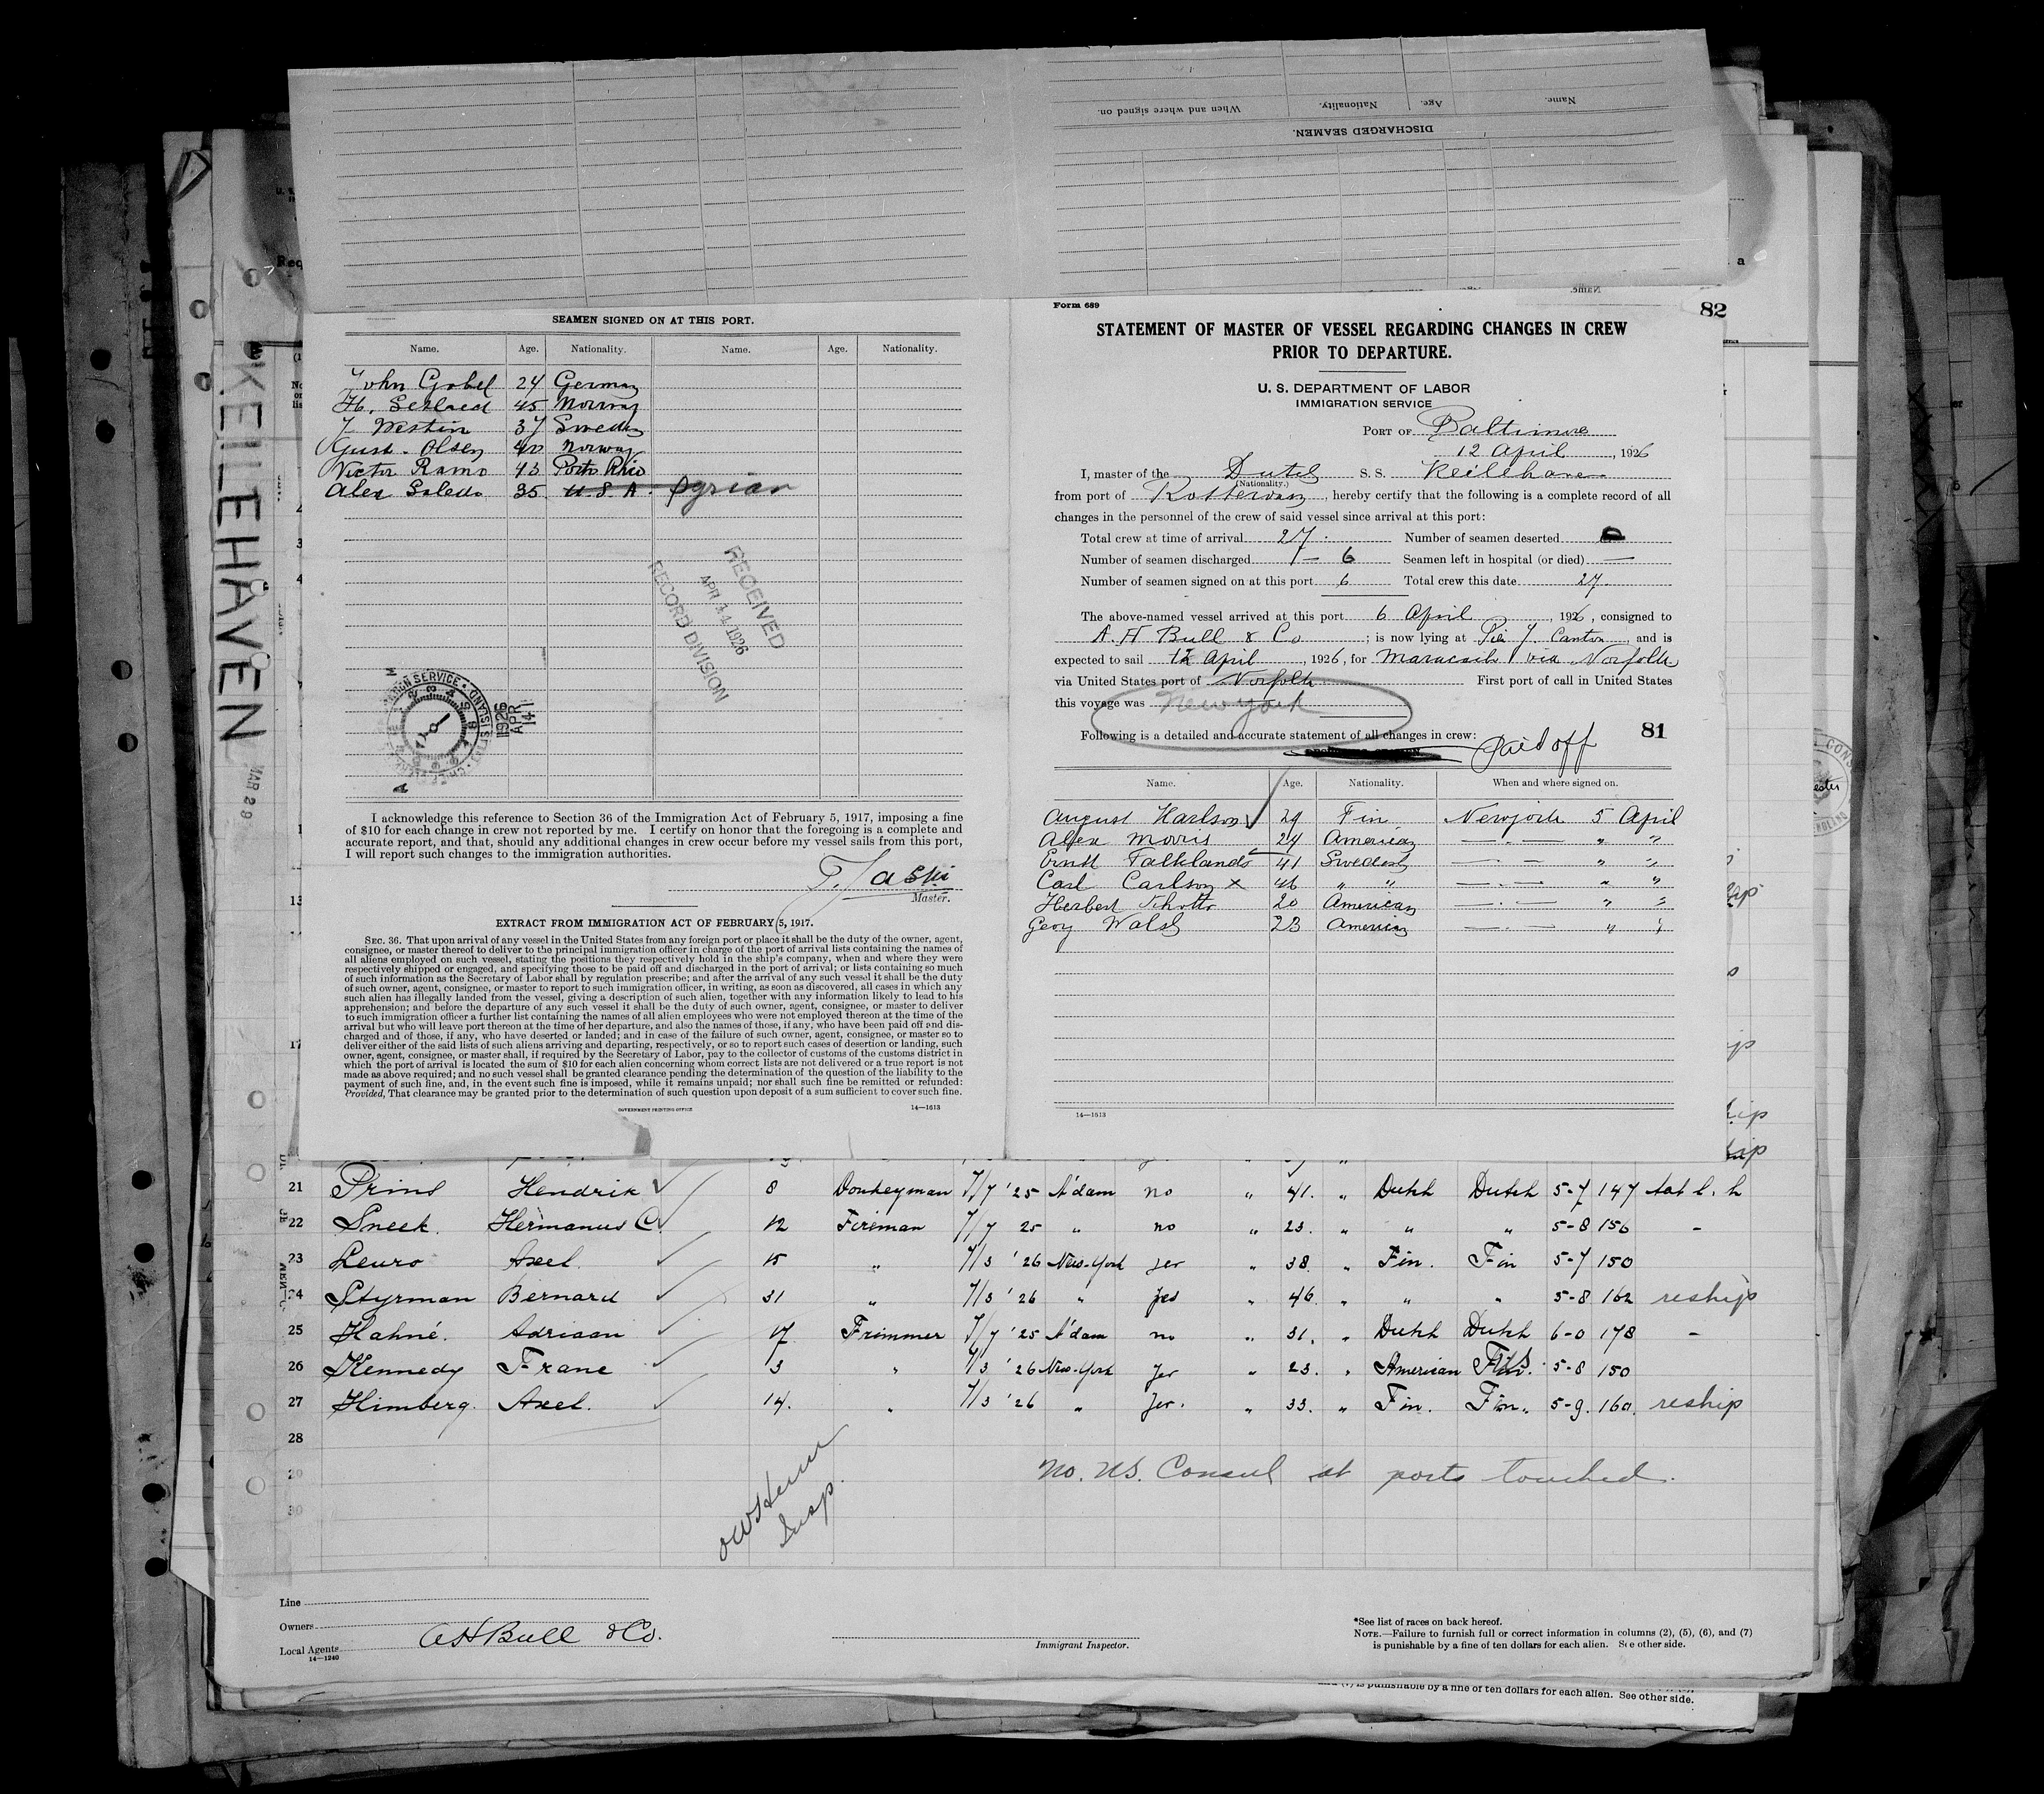 When and where signed on.
Nationality.
Age.
Name.
DISCHARGED SEAMEN.
KEILEHÅVEN
MAR 29
SEAMEN SIGNED ON AT THIS PORT.
Name. Age. Nationality. Name. Age. Nationality.
John Gobel 24 Germany
45 Norway
J Westin 37 Sweden
Gust. Olsen 40 Norway
Victor Ramo 43 Porto Rico
Alex Saledo 35 U S A. Syrian
RECEIVED
APR 14 1926
RECORD DIVISION
1926
APR
14
I acknowledge this reference to Section 36 of the Immigration Act of February 5, 1917, imposing a fine
of $10 for each change in crew not reported by me. I certify on honor that the foregoing is a complete and
accurate report, and that, should any additional changes in crew occur before my vessel sails from this port,
I will report such changes to the immigration authorities.
Master.
EXTRACT FROM IMMIGRATION ACT OF FEBRUARY 5, 1917.
SEC. 36. That upon arrival of any vessel in the United States from any foreign port or place it shall be the duty of the owner, agent,
consignee, or master thereof to deliver to the principal immigration officer in charge of the port of arrival lists containing the names of
all aliens employed on such vessel, stating the positions they respectively hold in the ship's company, when and where they were
respectively shipped or engaged, and specifying those to be paid off and discharged in the port of arrival; or lists containing so much
of such information as the Secretary of Labor shall by regulation prescribe; and after the arrival of any such vessel it shall be the duty
of such owner, agent, consignee, or master to report to such immigration officer, in writing, as soon as discovered, all cases in which any
such alien has illegally landed from the vessel, giving a description of such alien, together with any information likely to lead to his
apprehension; and before the departure of any such vessel it shall be the duty of such owner, agent, consignee, or master to deliver
to such immigration officer a further list containing the names of all alien employees who were not employed thereon at the time of the
arrival but who will leave port thereon at the time of her departure, and also the names of those, if any, who have been paid off and dis-
charged and of those, if any, who have deserted or landed; and in case of the failure of such owner, agent, consignee, or master so to
deliver either of the said lists of such aliens arriving and departing, respectively, or so to report such cases of desertion or landing, such
owner, agent, consignee, or master shall, if required by the Secretary of Labor, pay to the collector of customs of the customs district in
which the port of arrival is located the sum of $10 for each alien concerning whom correct lists are not delivered or a true report is not
made as above required; and no such vessel shall be granted clearance pending the determination of the question of the liability to the
payment of such fine, and, in the event such fine is imposed, while it remains unpaid; nor shall such fine be remitted or refunded:
Provided, That clearance may be granted prior to the determination of such question upon deposit of a sum sufficient to cover such fine.
GOVERNMENT PRINTING OFFICE 14—1613
Form 689
82
STATEMENT OF MASTER OF VESSEL REGARDING CHANGES IN CREW
PRIOR TO DEPARTURE.
U. S. DEPARTMENT OF LABOR
IMMIGRATION SERVICE
PORT OF Baltimore
12 April, 1926
I, master of the Dutch S. S. Keilehaven
(Nationality.)
from port of Rotterdam, hereby certify that the following is a complete record of all
changes in the personnel of the crew of said vessel since arrival at this port:
Total crew at time of arrival 27. Number of seamen deserted
Number of seamen discharged 6 Seamen left in hospital (or died) —
Number of seamen signed on at this port 6 Total crew this date 27.
The above-named vessel arrived at this port 6 April, 1926, consigned to
A. H Bull & Co; is now lying at Pier 7 Canton, and is
expected to sail 12 April, 1926, for Maracaibo via Norfolk
via United States port of Norfolk First port of call in United States
this voyage was New York
Following is a detailed and accurate statement of all changes in crew:
81
Paid off
Name. Age. Nationality. When and where signed on.
August Harlson 29 Fin New york 5 April
Alex Moris 24 American —.— " "
Ernst Falklands 41 Sweden —.— " "
Carl Carlson x 46 " " —.— " "
Herbert Schotts 20 American —.— " "
Geory Walsh 23 American —.— " "
14—1613
21 Prins Hendrik 8 Donkeyman 7/7 '25 A'dam no " 41. " Dutch Dutch 5-7 147 tat l. h
22 Sneek. Hermanus C. 12 Fireman 7/7 25 " no " 23. " " " 5-8 150 -
23 Leuro Axel. 15 " 7/3 '26 New-York yes " 38. " Fin. Fin 5-7 150
24 Styrman Bernard 31 " 7/3 '26 " yes " 46. " " " 5-8 162 reship
25 Hahné. Adriaan 17 Trimmer 7/7 '25 A'dam no " 31. " Dutch Dutch 6-0 178 -
26 Kennedy Franc 3 " 7/3 '26 New-York yes " 23. " American 5-8 150
27 Himberg. Axel. 14. " 7/3 '26 " yes. " 33. " Fin. Fin. 5-9. 160. reship
28
29
30
No. U.S. Consul at ports touched.
Insp.
Line
Owners
Local Agents
AH Bull & Co.
14—1240
Immigrant Inspector.
*See list of races on back hereof.
NOTE.—Failure to furnish full or correct information in columns (2), (5), (6), and (7)
is punishable by a fine of ten dollars for each alien. See other side.
is punishable by a fine of ten dollars for each alien. See other side.